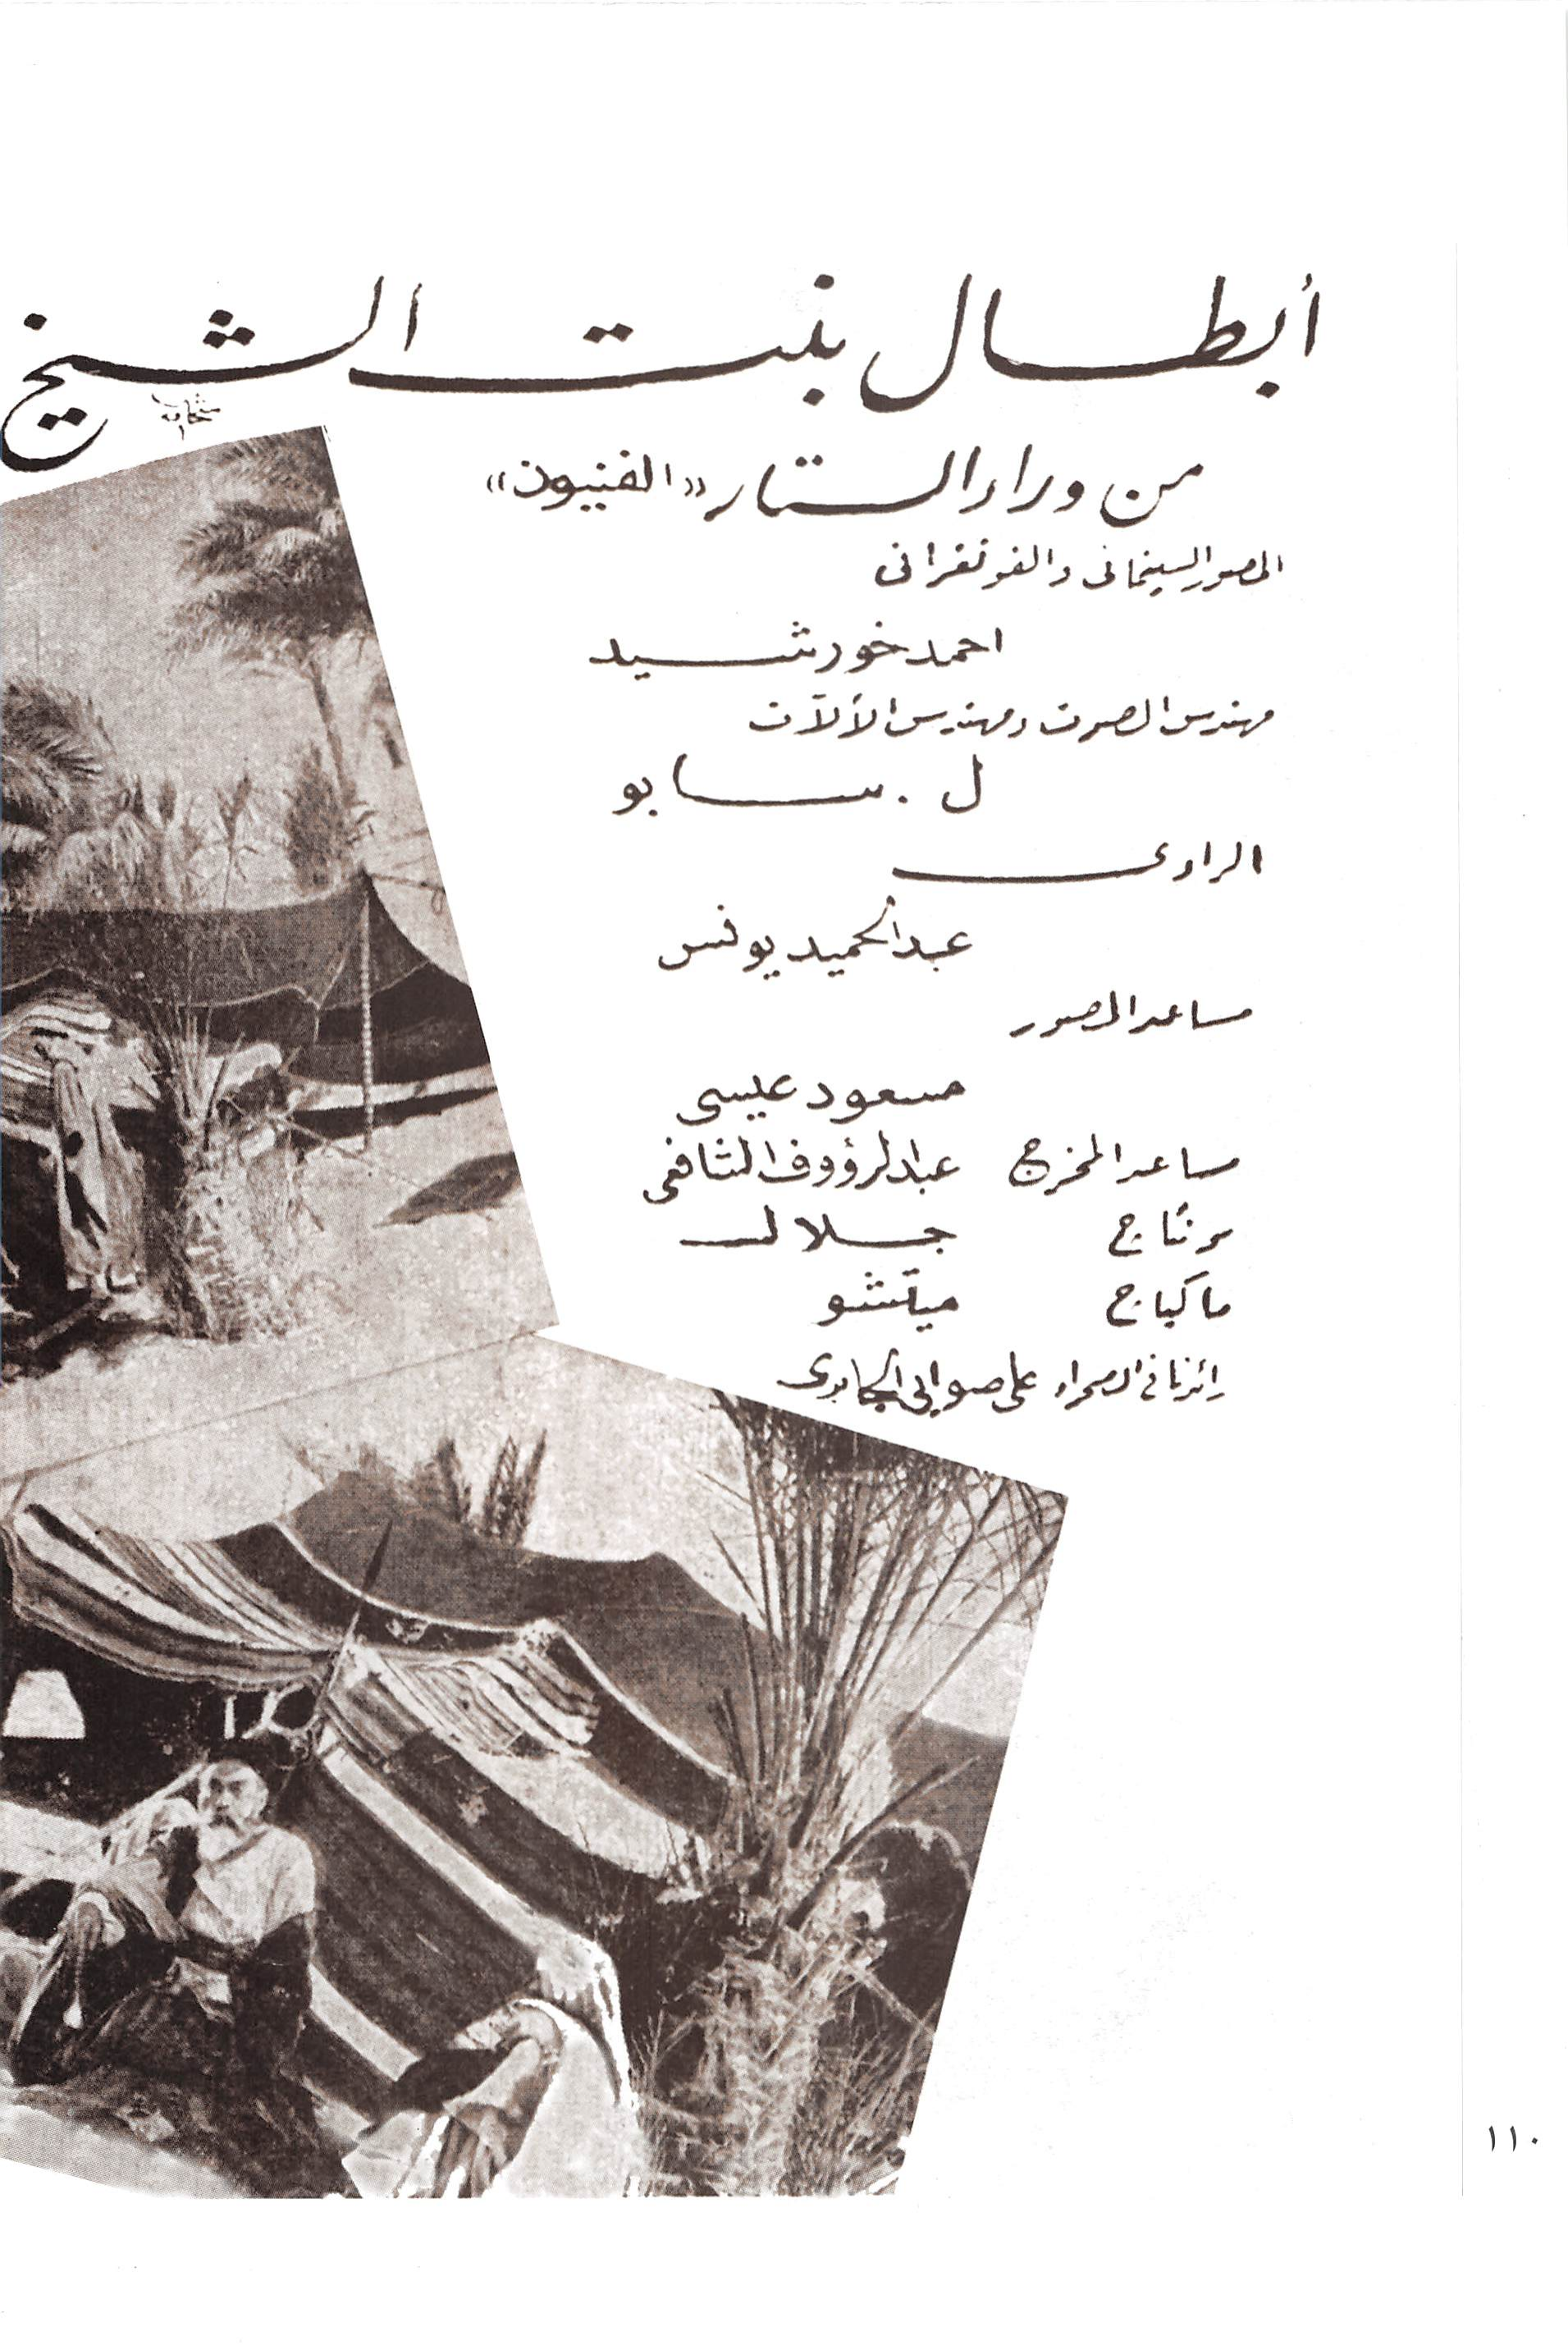 أبطال بنت الشيخ
من وراء الستار «الفنيون»
المصور السينمائى والفوتغرافى
احمد خورشيد
مهندس الصوت ومهندس الألآت
ل. سابو
الراوى
عبد الحميد يونس
مساعد المصور
مسعود عيسى
مساعد المخرج عبد الرؤوف الشافعى
مونتاج جلال
ماكياج ميتشو
رائدنا فى الصحراء على صوابى الجابرى
١١٠